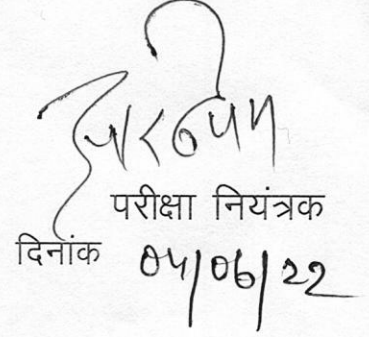 परीक्षा नियंत्रक
दिनांक 04/06/22